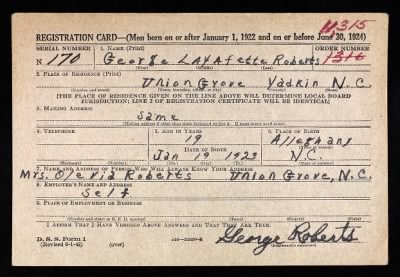 11,315
REGISTRATION CARD—(Men born on or after January 1, 1922 and on or before June 30, 1924)
SERIAL NUMBER 1. NAME (Print) ORDER NUMBER
N 170 George LaYAfette Roberts 1316
2. PLACE OF RESIDENCE (Print)
Union Grove Yadkin N.C.
[THE PLACE OF RESIDENCE GIVEN ON THE LINE ABOVE WILL DETERMINE LOCAL BOARD
JURISDICTION; LINE 2 OF REGISTRATION CERTIFICATE WILL BE IDENTICAL]
3. MAILING ADDRESS
Same
4. TELEPHONE 5. AGE IN YEARS 6. PLACE OF BIRTH
19 Alleghany
DATE OF BIRTH
Jan 19 1923 N.C.
7. NAME AND ADDRESS OF PERSON WHO WILL ALWAYS KNOW YOUR ADDRESS
Mrs. Olevia Roberts Union Grove, N.C.
8. EMPLOYER'S NAME AND ADDRESS
Self
9. PLACE OF EMPLOYMENT OR BUSINESS
I AFFIRM THAT I HAVE VERIFIED ABOVE ANSWERS AND THAT THEY ARE TRUE.
D. S. S. Form 1
(Revised 6-1-42) (over) George Roberts